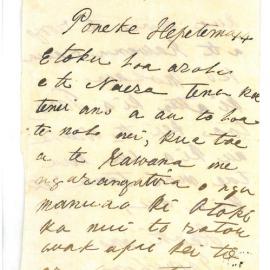 Poneke Hepetema 4
E toku hoa aroha
e te Naera tena ra
tenei ano a au to hoa
te noho nei, kua tae
a te Kawana me
nga rangatira o nga
manuao ki Otaki
ka nui to ratou
whakapai kei te